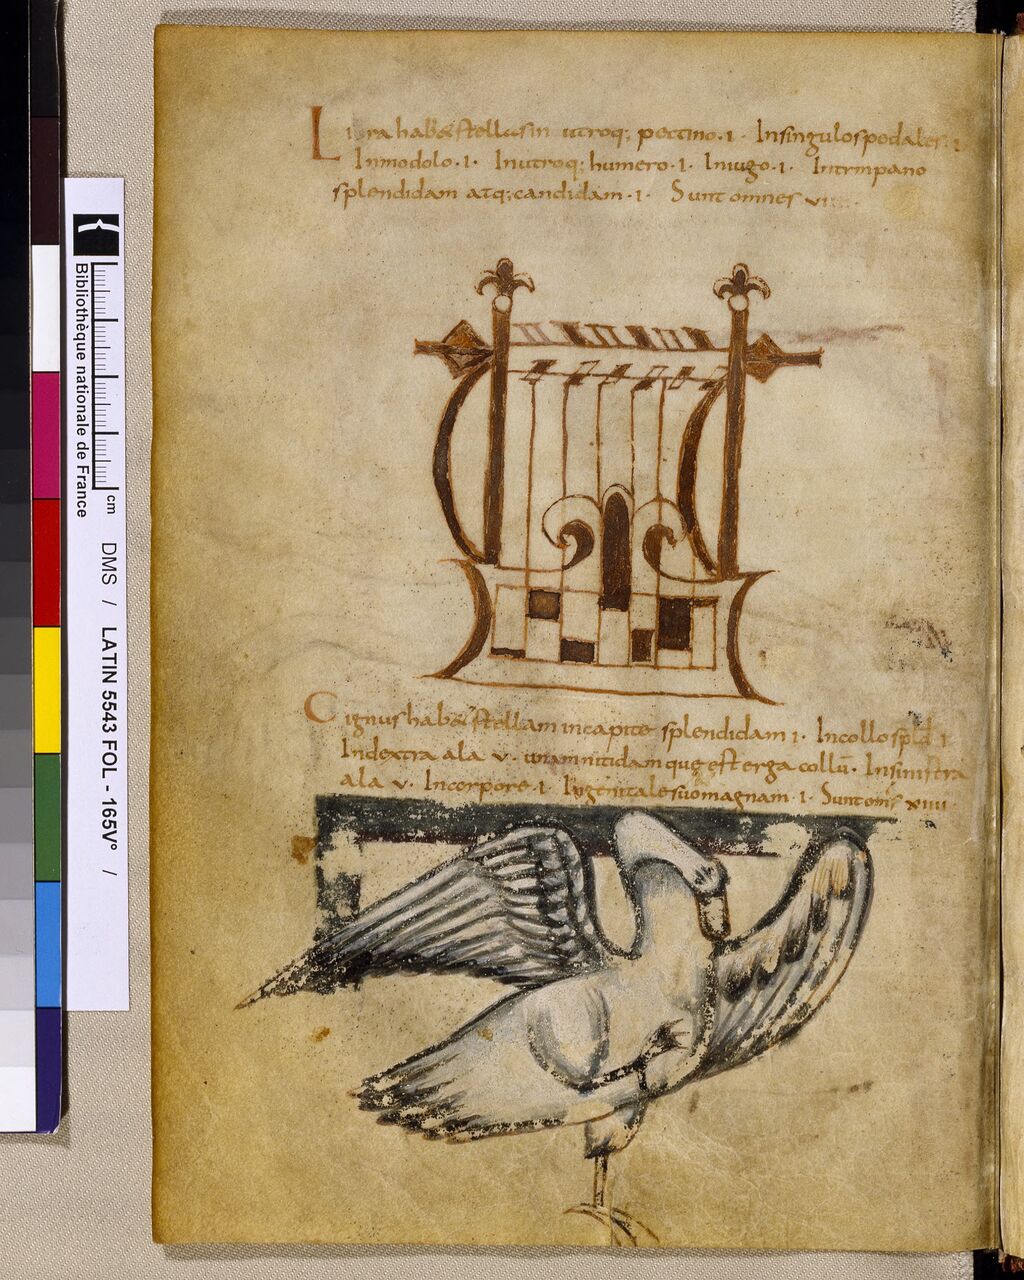 Lira habet stellas in utroq; pectino · I · In singulos pedales · I ·
In modolo · I · In utroq; humero · I · In iugo · I · In timpano
splendidam atq; candidam · I · Sunt omnes
Cignus habet stellam in capite splendidam I · In collo spld I
In dextra ala V · unam nitidam quę est erga collū · In sinistra
ala V · In corpore · I · In genitale suo magnam · I · Sunt oms XIIII
Bibliothèque nationale de France
cm
DMS / LATIN 5543 FOL - 165V° /